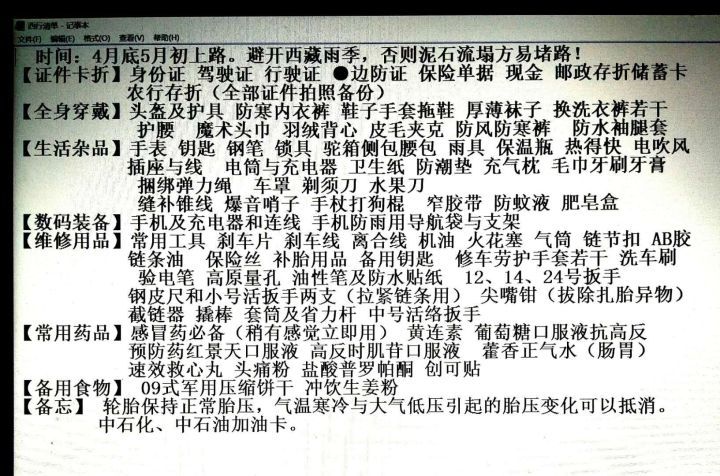 西行清单 - 记事本
文件(F) 编辑(E) 格式(O) 查看(V) 帮助(H)
时间：4月底5月初上路。避开西藏雨季，否则泥石流塌方易堵路！
【证件卡折】身份证 驾驶证 行驶证 ●边防证 保险单据 现金 邮政存折储蓄卡
农行存折（全部证件拍照备份）
【全身穿戴】头盔及护具 防寒内衣裤 鞋子手套拖鞋 厚薄袜子 换洗衣裤若干
护腰 魔术头巾 羽绒背心 皮毛夹克 防风防寒裤 防水袖腿套
【生活杂品】手表 钥匙 钢笔 锁具 驼箱侧包腰包 雨具 保温瓶 热得快 电吹风
插座与线 电筒与充电器 卫生纸 防潮垫 充气枕 毛巾牙刷牙膏
捆绑弹力绳 车罩 剃须刀 水果刀
缝补锥线 爆音哨子 手杖打狗棍 窄胶带 防蚊液 肥皂盒
【数码装备】手机及充电器和连线 手机防雨用导航袋与支架
【维修用品】常用工具 刹车片 刹车线 离合线 机油 火花塞 气筒 链节扣 AB胶
链条油 保险丝 补胎用品 备用钥匙 修车劳护手套若干 洗车刷
验电笔 高原量孔 油性笔及防水贴纸 12、14、24号扳手
钢皮尺和小号活扳手两支（拉紧链条用） 尖嘴钳（拔除扎胎异物）
截链器 撬棒 套筒及省力杆 中号活络扳手
【常用药品】感冒药必备（稍有感觉立即用） 黄连素 葡萄糖口服液抗高反
预防药红景天口服液 高反时肌苷口服液 藿香正气水（肠胃）
速效救心丸 头痛粉 盐酸普罗帕酮 创可贴
【备用食物】 09式军用压缩饼干 冲饮生姜粉
【备忘】 轮胎保持正常胎压，气温寒冷与大气低压引起的胎压变化可以抵消。
中石化、中石油加油卡。